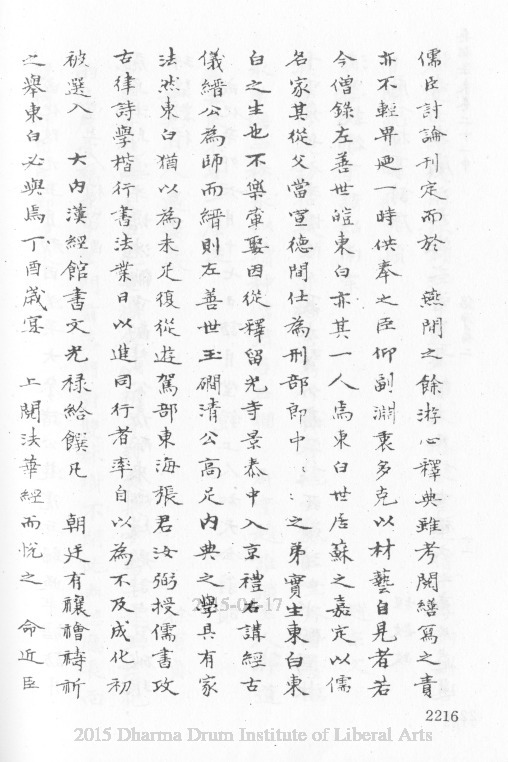 儒臣討論刊定而於　燕閒之餘游心釋典雖考閱繕寫之責
亦不輕畀廼一時供奉之臣仰副淵衷多克以材藝自見者若
今僧錄左善世皚東白亦其一人焉東白世居蘇之嘉定以儒
名家其從父當宣德間仕為刑部郎中：：之弟實生東白東
白之生也不樂葷娶因從釋留光寺景泰中入京禮右講經古
儀縉公為師而縉則左善世玉磵清公高足內典之學具有家
法然東白猶以為未足復從遊駕部東海張君汝弼授儒書攻
古律詩學楷行書法業日以進同行者率自以為不及成化初
被選入　大內漢經館書文光祿給饌凡　朝廷有禳禬禱祈
之舉東白必與焉丁酉歲寔　上閱法華經而悅之　命近臣
2015-04-17
2216
2015 Dharma Drum Institute of Liberal Arts